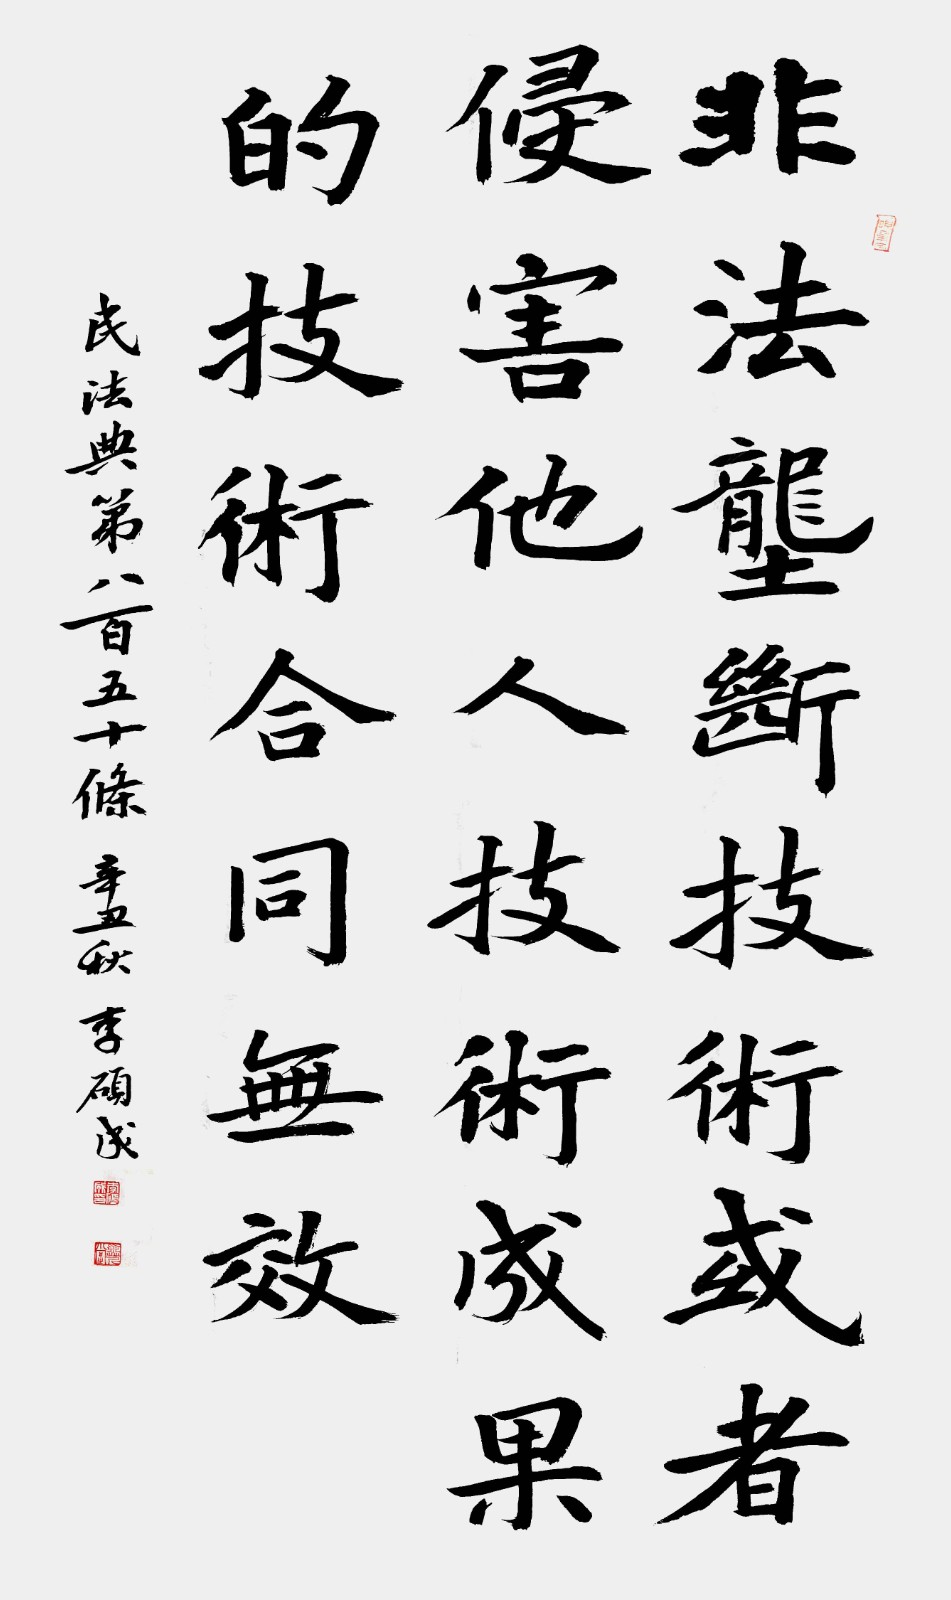 非法壟斷技術或者
侵害他人技術成果
的技術合同無效
民法典第八百五十條 辛丑秋 李碩成